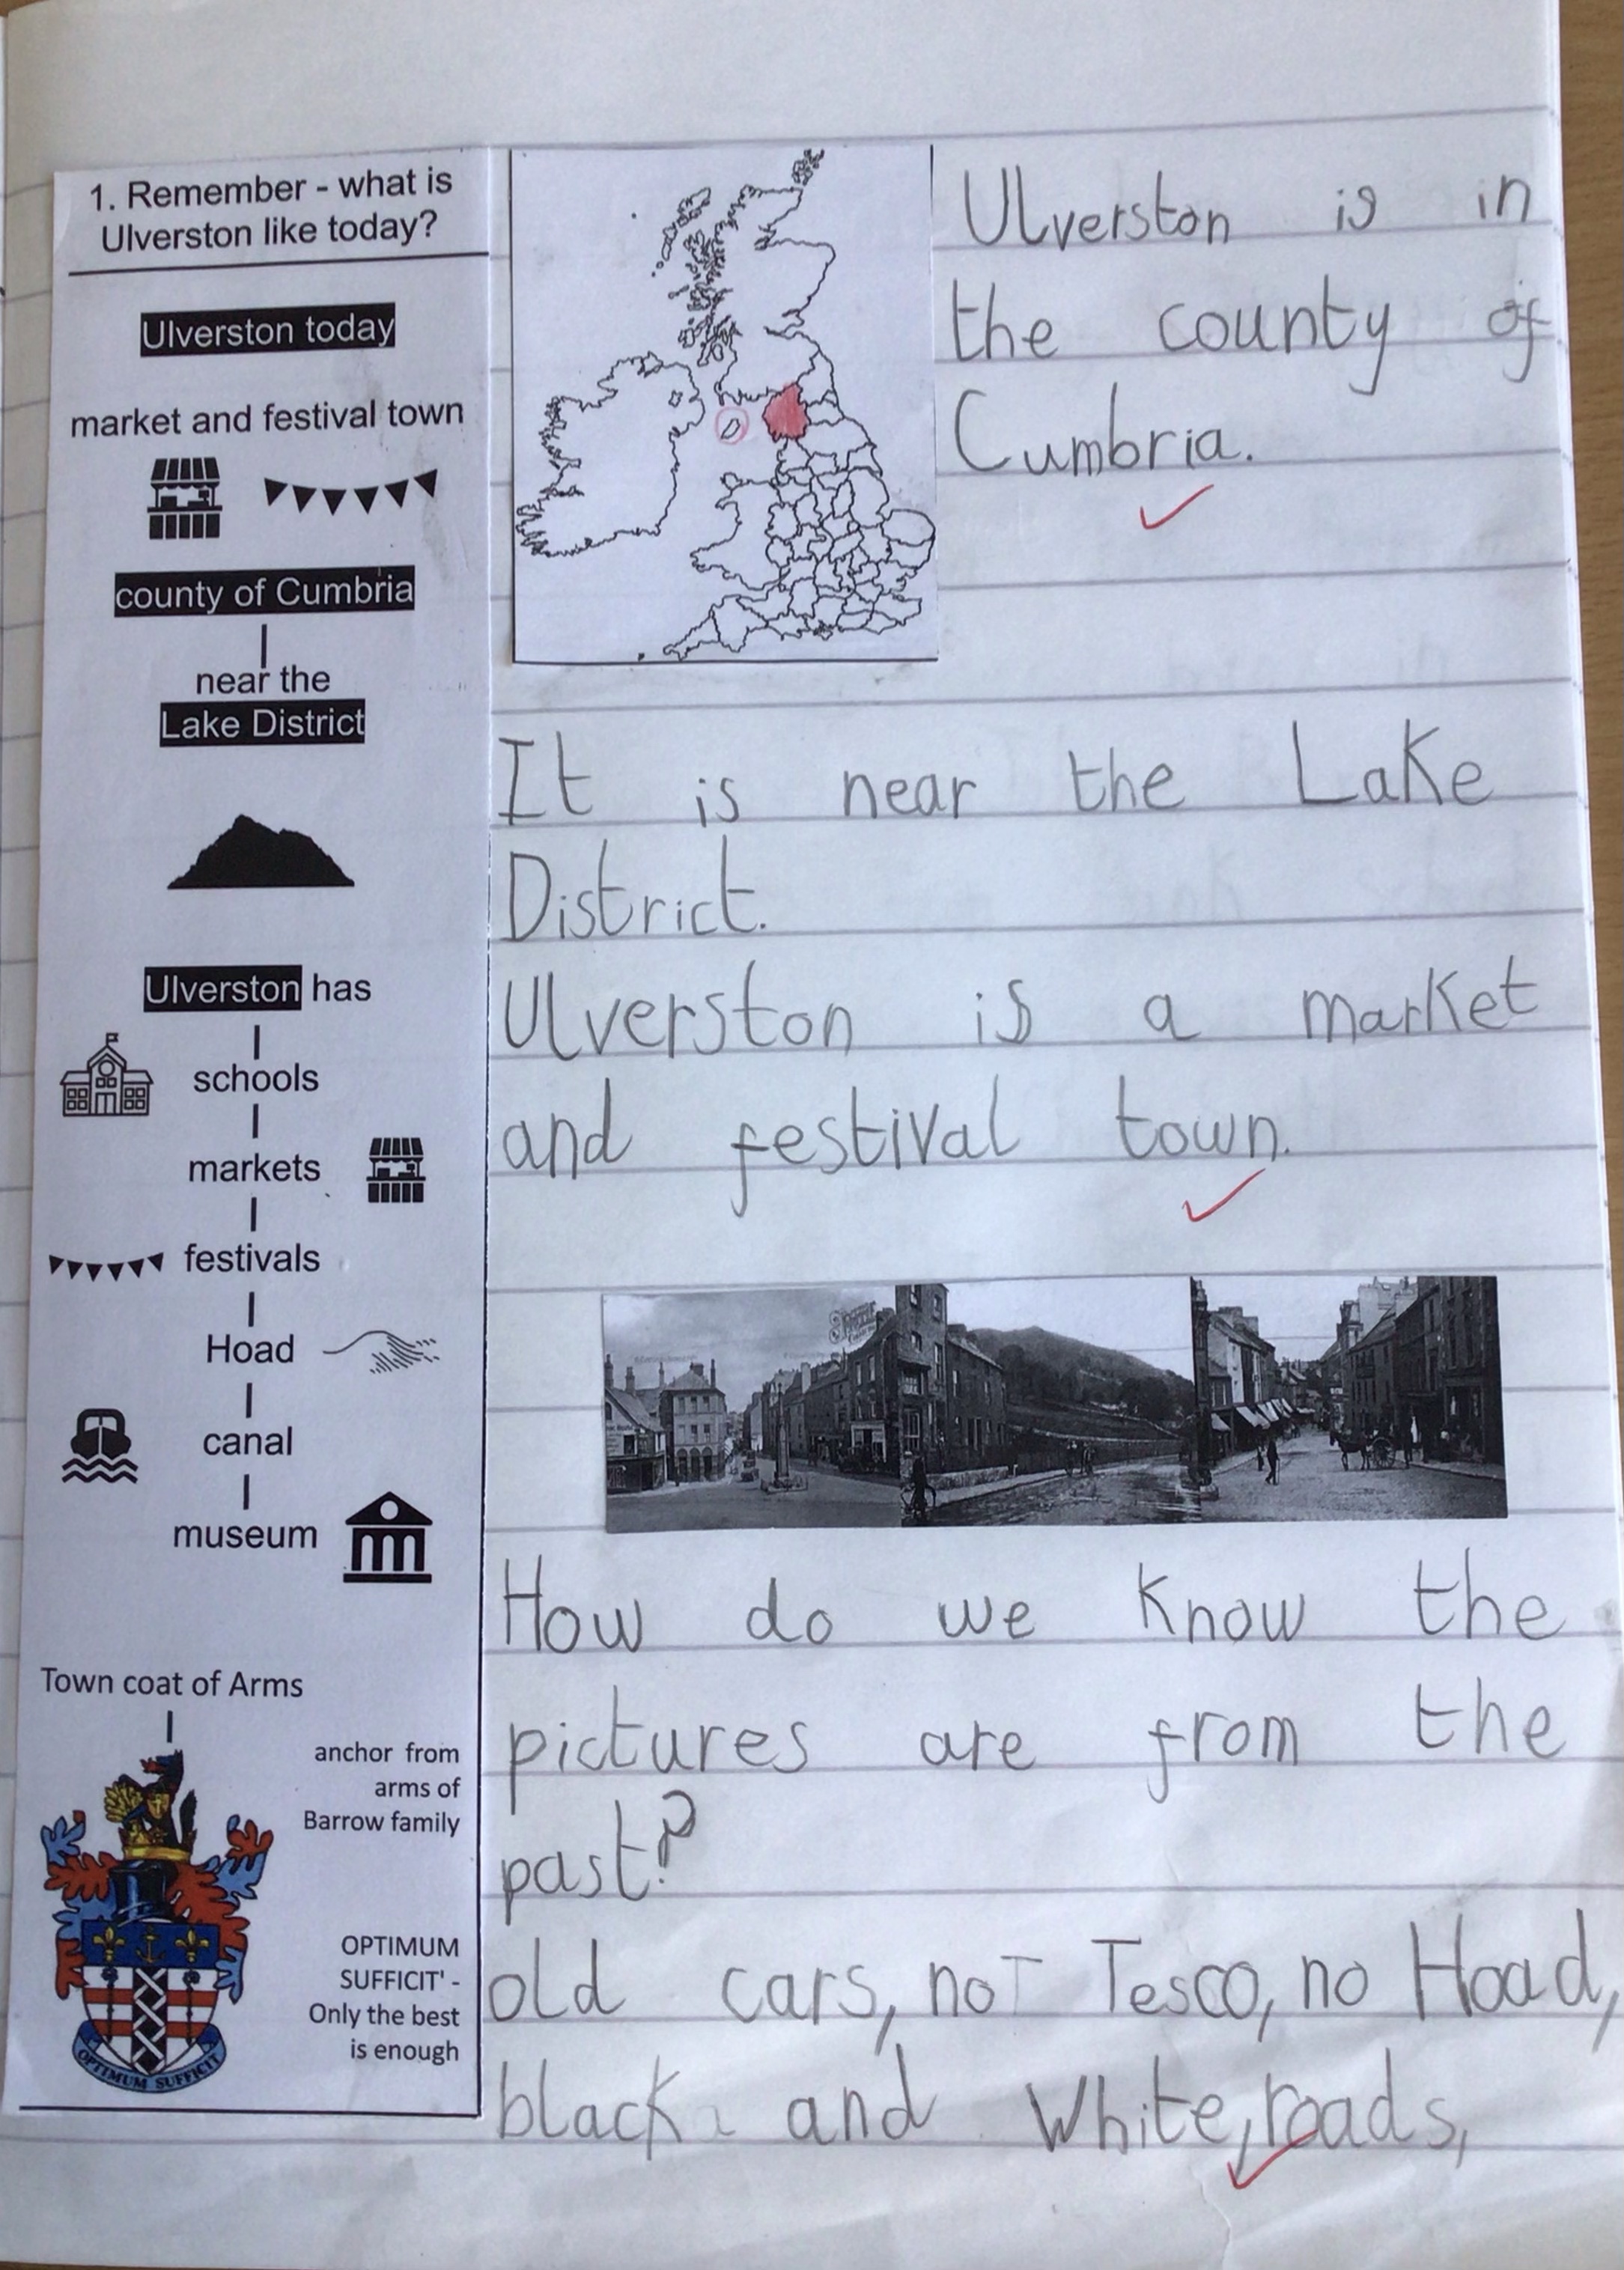 1. Remember - what is
Ulverston like today?
Ulverston today
market and festival town
county of Cumbria
near the
Lake District
Ulverston has
schools
markets
festivals
Hoad
canal
museum
Town coat of Arms
anchor from
arms of
Barrow family
OPTIMUM
SUFFICIT' -
Only the best
is enough
OPTIMUM SUFFICIT
Ulverston is in
the county of
Cumbria.
It is near the Lake
District.
Ulverston is a market
and festival town.
How do we know the
pictures are from the
past?
old cars, not Tesco, no Hoad,
black and white, roads,